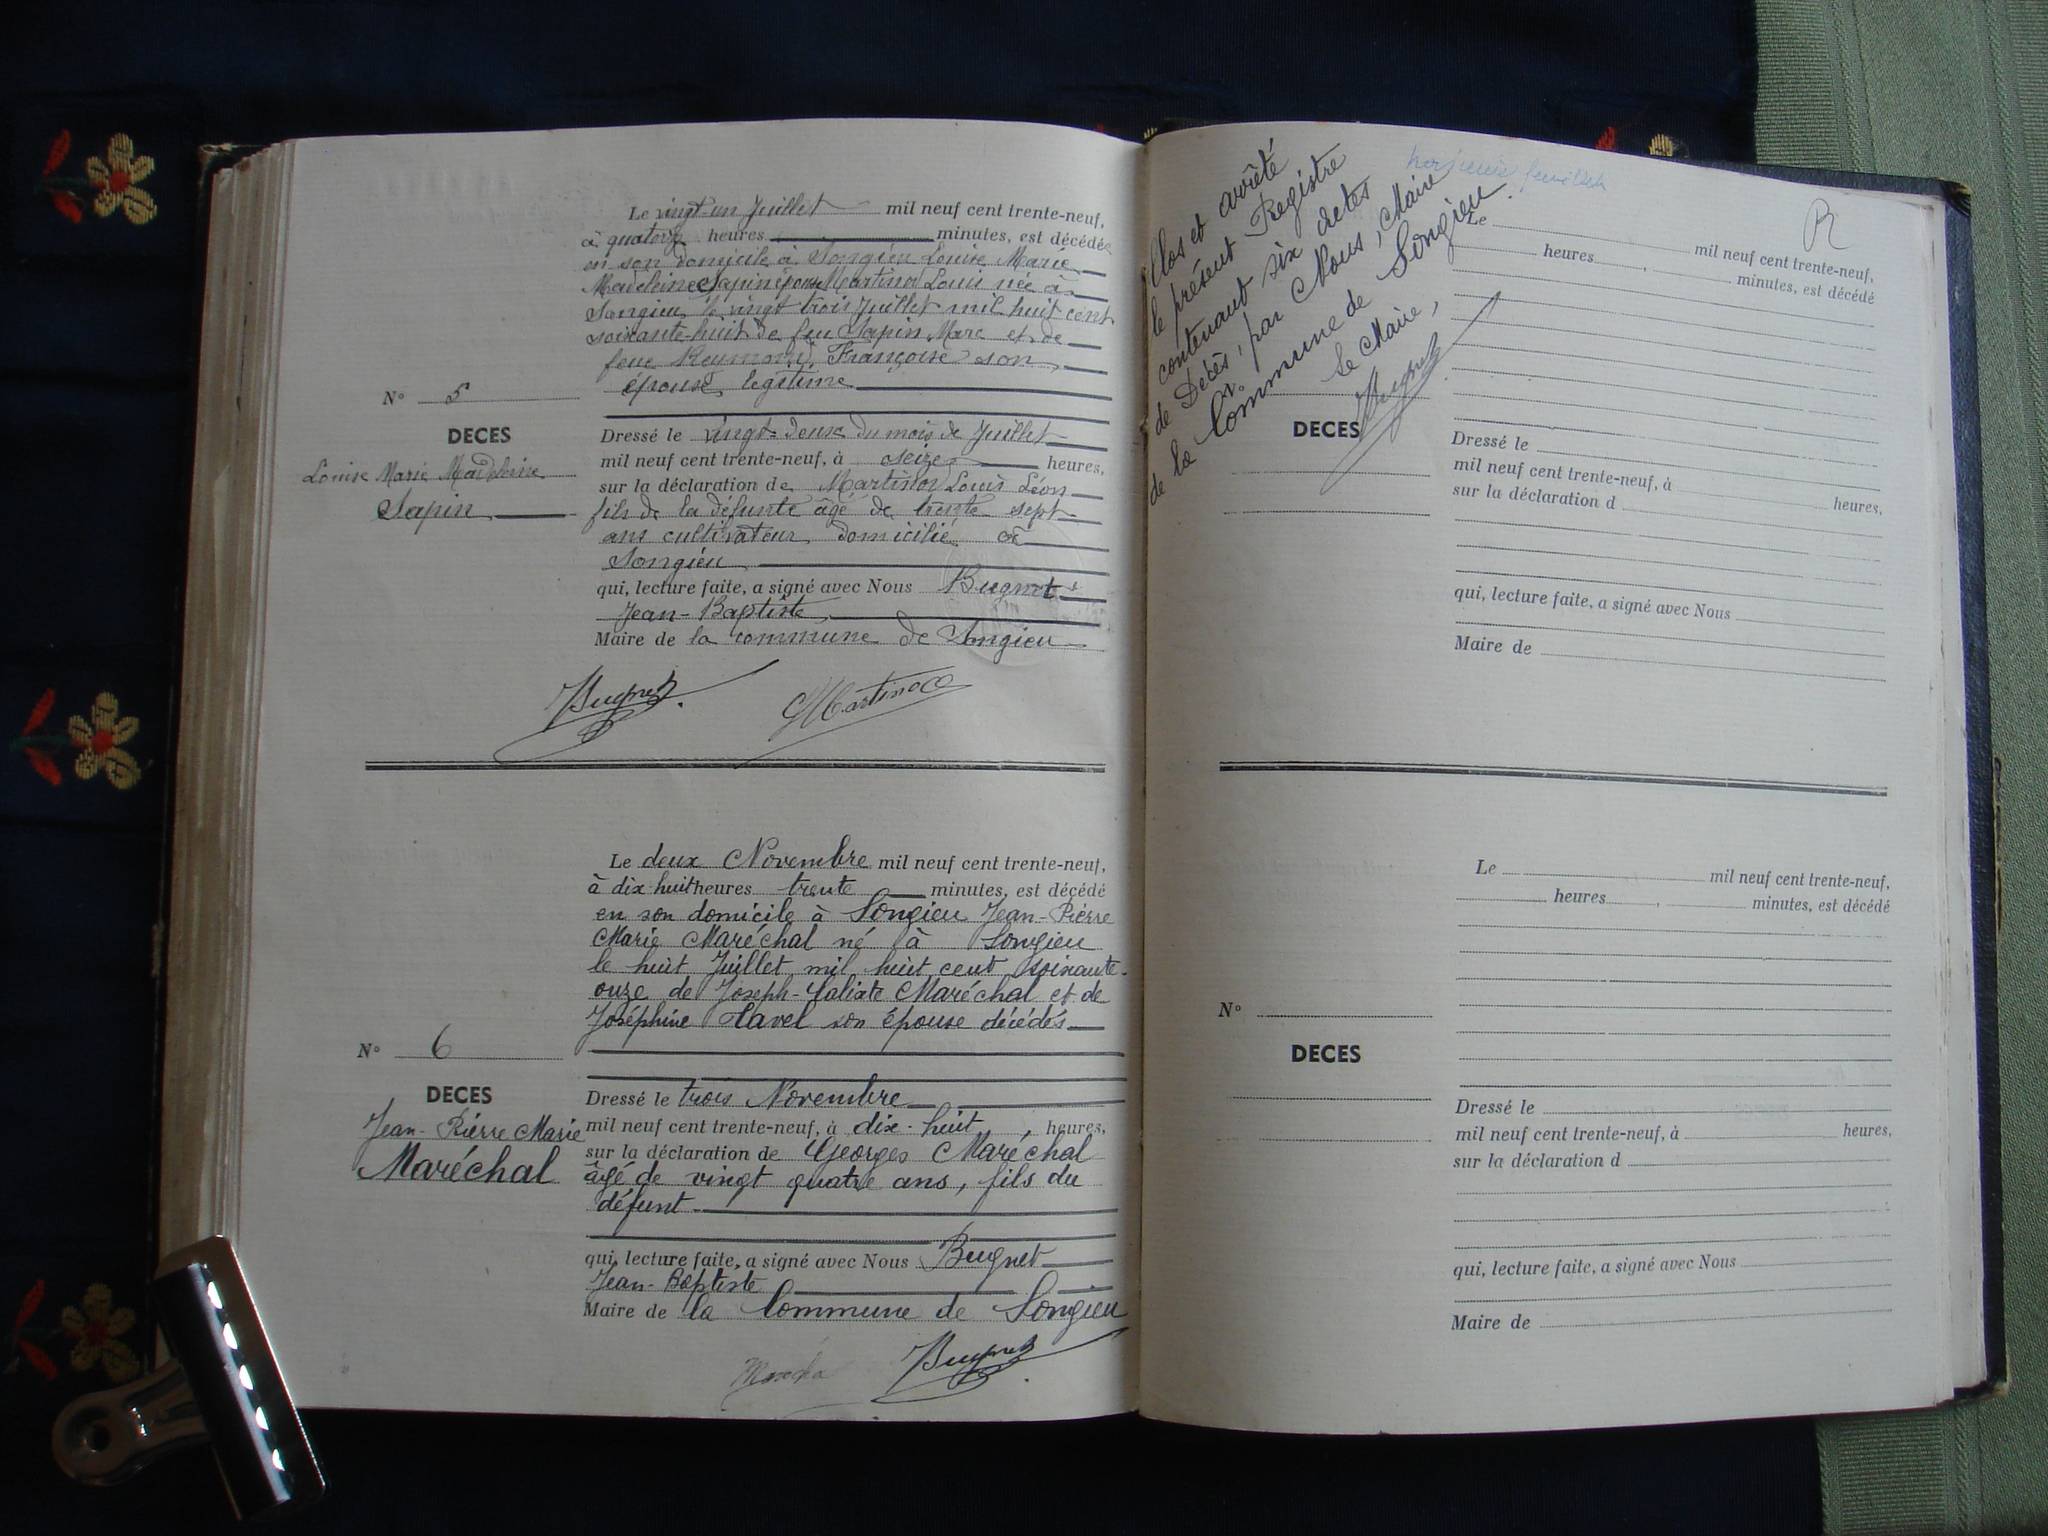 Le vingt-un Juillet mil neuf cent trente-neuf,
à quatorze heures minutes, est décédée
en son domicile à Songieu Louise Marie
Madeleine Sapin épouse Martinod Louis née à
Songieu le vingt trois Juillet mil huit cent
soixante-huit de feu Sapin Marc et de
feue Reymond, Françoise son
épouse légitime
N° 5
DECES
Louise Marie Madeleine
Sapin
Dressé le vingt-deux du mois de Juillet
mil neuf cent trente-neuf, à seize heures,
sur la déclaration de Martinod Louis Léon
fils de la défunte âgé de trente sept
ans cultivateur domicilié à
Songieu
qui, lecture faite, a signé avec Nous Bugnet
Jean-Baptiste
Maire de la commune de Songieu
Bugnet Martinod
Le deux Novembre mil neuf cent trente-neuf,
à dix huit heures trente minutes, est décédé
en son domicile à Songieu Jean-Pierre
Marie Maréchal né à Songieu
le huit Juillet mil huit cent soixante-
onze de Joseph-Calixte Maréchal et de
Joséphine Tavel son épouse décédés
N° 6
DECES
Jean-Pierre Marie
Maréchal
Dressé le trois Novembre
mil neuf cent trente-neuf, à dix-huit, heures,
sur la déclaration de Georges Maréchal
âgé de vingt quatre ans, fils du
défunt
qui, lecture faite, a signé avec Nous Bugnet
Jean-Baptiste
Maire de la Commune de Songieu
Bugnet
Clos et arrêté
le présent Registre
contenant six actes
de Décès, par Nous, Maire
de la Commune de Songieu.
Le Maire,
Bugnet
R
Le mil neuf cent trente-neuf,
heures minutes, est décédé
N°
DECES
Dressé le
mil neuf cent trente-neuf, à heures,
sur la déclaration d
qui, lecture faite, a signé avec Nous
Maire de
Le mil neuf cent trente-neuf,
heures minutes, est décédé
N°
DECES
Dressé le
mil neuf cent trente-neuf, à heures,
sur la déclaration d
qui, lecture faite, a signé avec Nous
Maire de